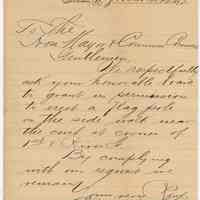 To The
Hon Mayor & Common Council
Gentlemen
We respectfully
ask your honorable
to grant us permission
to erect a flag pole
on the side walk near
the curb at corner of
1st &
By complying
with our request we
remain